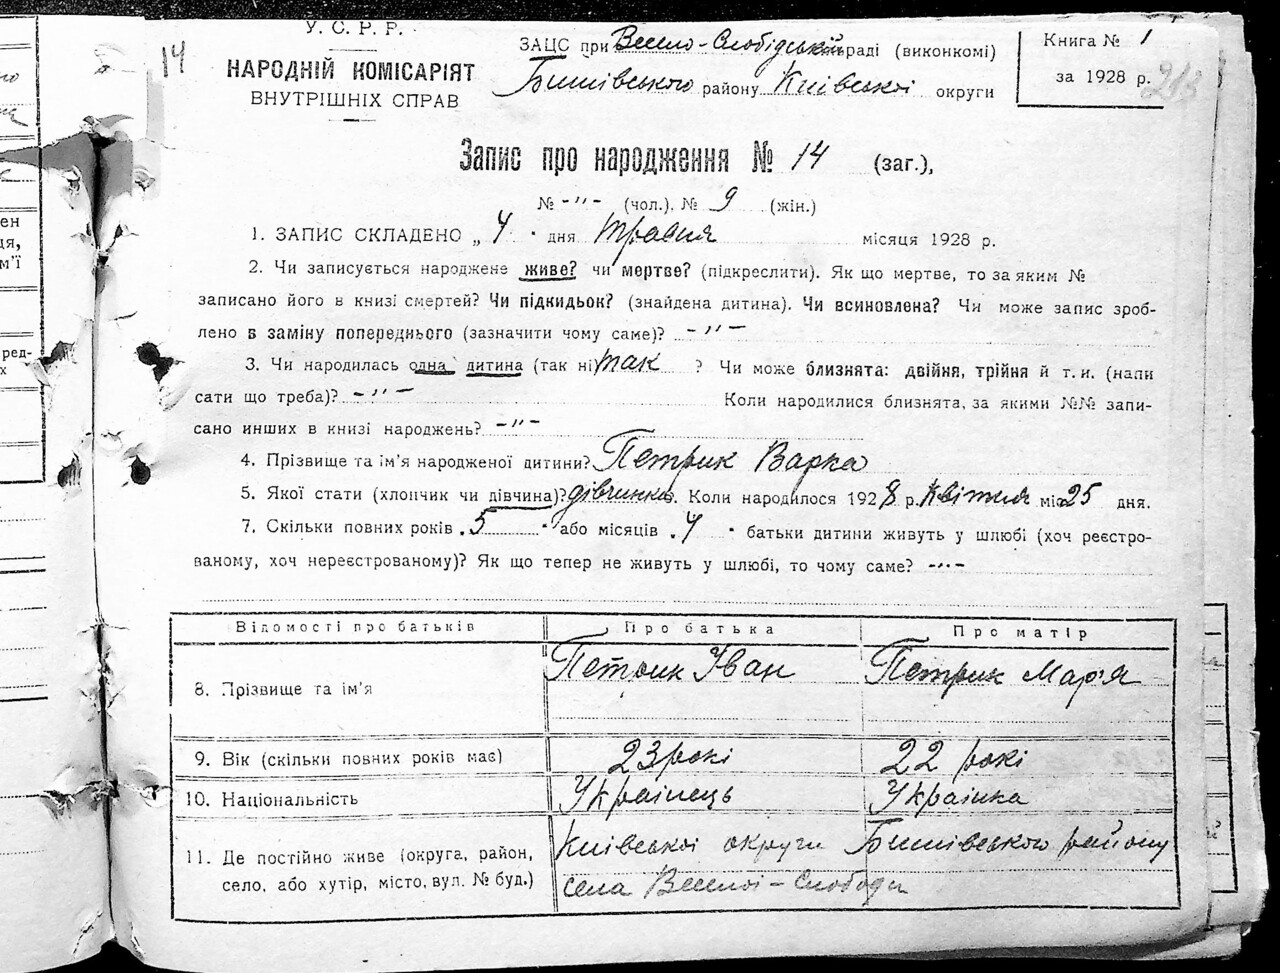 У. С. Р. Р.
НАРОДНІЙ КОМІСАРІЯТ
ВНУТРІШНІХ СПРАВ
14
ЗАЦС при Весело-Слобідській раді (виконкомі)
Бишівського району Київської округи
Книга № 1
за 1928 р.
Запис про народження № 14 (заг.),
№ -"- (чол.), № 9 (жін.)
1. ЗАПИС СКЛАДЕНО „ 4 " дня травня місяця 1928 р.
2. Чи записується народжене живе? чи мертве? (підкреслити). Як що мертве, то за яким №
записано його в книзі смертей? Чи підкидьок? (знайдена дитина). Чи всиновлена? Чи може запис зроб-
лено в заміну попереднього (зазначити чому саме)? -"-
3. Чи народилась одна дитина (так ні) так ? Чи може близнята: двійня, трійня й т. и. (напи
сати що треба)? -"- Коли народилися близнята, за якими №№ запи-
сано инших в книзі народжень? -"-
4. Прізвище та ім'я народженої дитини? Петрик Варка
5. Якої стати (хлопчик чи дівчина)? дівчинка. Коли народилося 1928 р. квітня міс 25 дня.
7. Скільки повних років „ 5 " або місяців „ 4 " батьки дитини живуть у шлюбі (хоч реєстро-
ваному, хоч нереєстрованому)? Як що тепер не живуть у шлюбі, то чому саме? -"-
Відомості про батьків Про батька Про матір
8. Прізвище та ім'я Петрик Іван Петрик Мар'я
9. Вік (скільки повних років має) 23 рокі 22 рокі
10. Національність Українець Українка
11. Де постійно живе (округа, район, Київської округи Бишівського району
село, або хутір, місто, вул. № буд.) села Веселої-Слободи